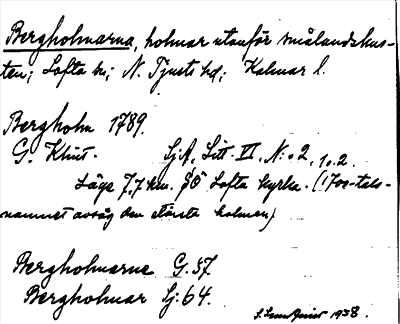 Bergholmarna, holmar utanför smålandskus-
ten; Lofta sn; N. Tjusts hd; Kalmar l.
Bergholm 1789.
G. Klint. Sj.A, Litt. VI, N:o 2, 10.2.
Läge 7,7 km. ÖSÖ Lofta kyrka. (1700-tals-
namnet avsåg den största holmen)
Bergholmarne G.57
Bergholmar Sj.64.
1938.